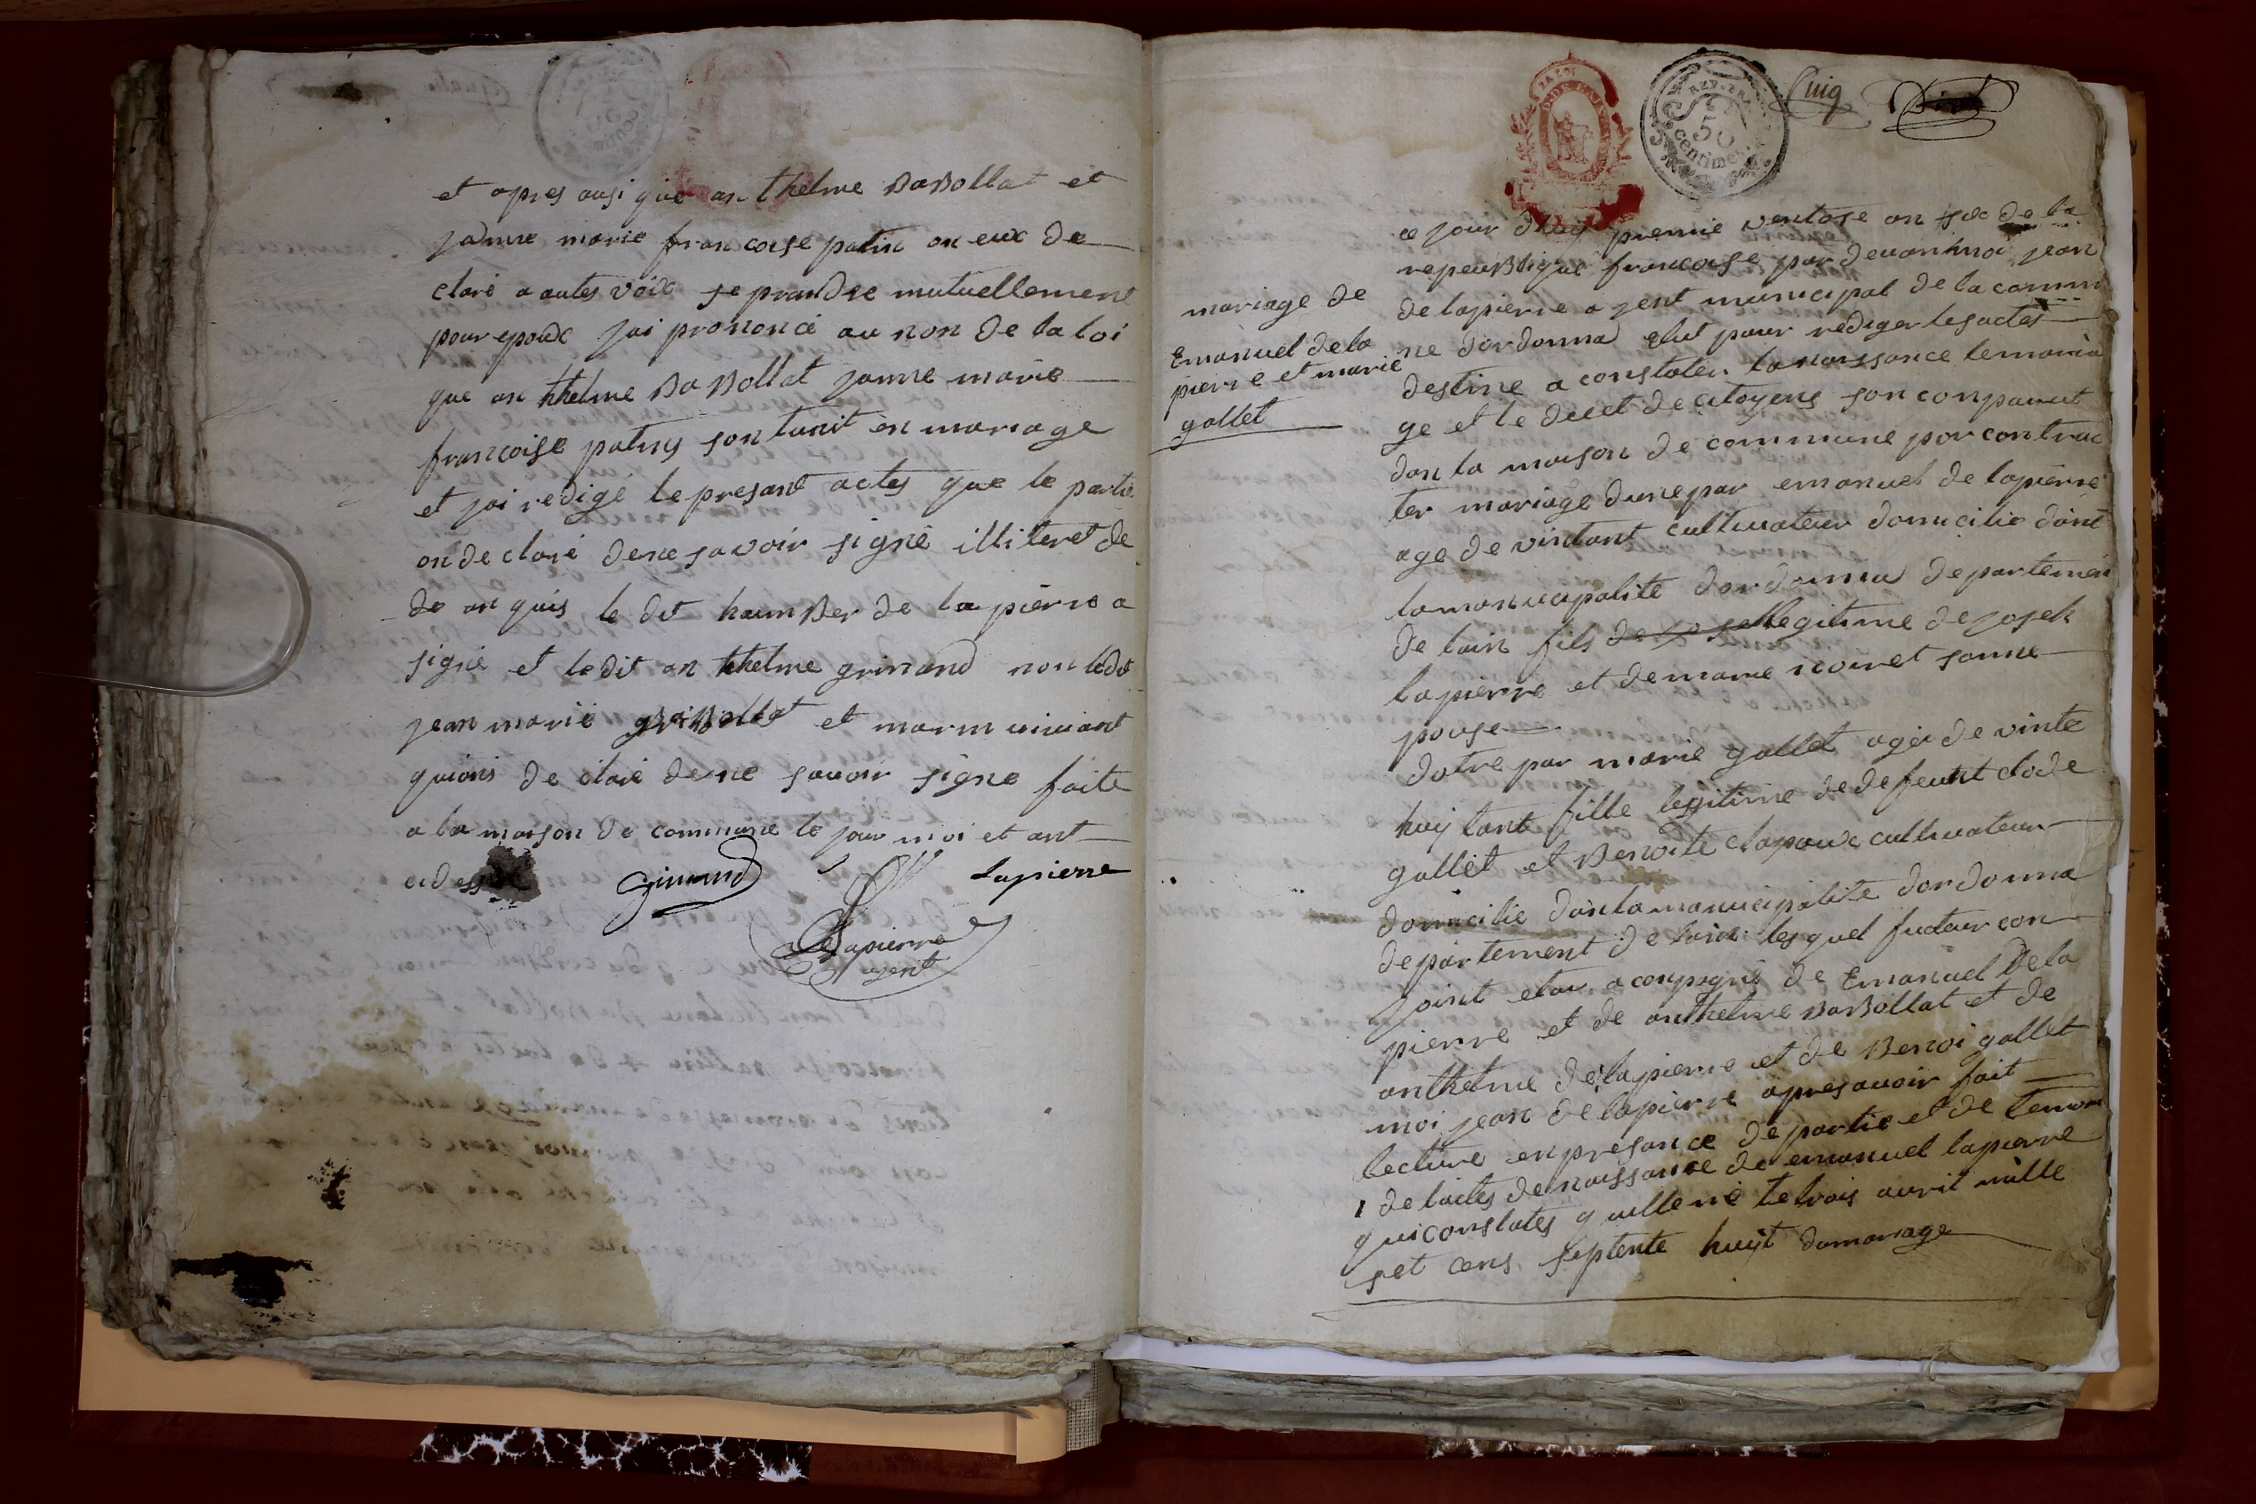 et apres ausi que anthelme BaBollat et
janne marie francoise patin on eux de
claré a autes voix se prandre mutuellement
pour epoux jai prononcé au non de la loi
que anthelme BaBollat janne marie
francoise patins son tunit en mariage
et jai redigé le presant actes que le partie
on declaré dene savoir signé illiteret de
de an quis le dit haumBer de lapierre a
signé et ledit anthelme grimand non ledit
jean marie BaBollat et marin viviant
quions de claré dene savoir signe faite
a la maison de commune le jour moi et ant
cidessus
Gimand
lapierre
Delapierre
agent
Cuig
REP. FRA
50
centimes
mariage de
Emanuel dela
pierre et marie
gallet
ce jour dhuy premie ventose an six de la
repeuBlique francoise par devan moi jean
delapierre agent municipal de la comm
ne dordonna elut pour rediger les actes
destine a constater la naissance le maria
ge et le decet de citoyens son conparut
dan la maison de commune por contrac
ter mariage dune par emanuel de lapierre
age de vintant cultivateur domicilie dant
la manucipalite dordonna departemen
de lain fils legitime de josek
lapierre et de marie noiret sonne
pouse
dotre par marie gallet agée de vinte
huy tant fille legitime de defeunt clode
gallet et Benoite clapoux cultivateur
domicilie dan la manucipalite dordonna
departement de lain lesquel futeur con
joint etan aconpagné de Emanuel Dela
pierre et de anthelme BaBollat et de
anthelme delapierre et de Benoi gallet
moi jean delapierre apres avoir fait
lecture en presance de partie et de temom
1 de lactes de naissanse de emanuel lapierre
qui constates quille né le trois avril mille
set cens septente huyt domariage